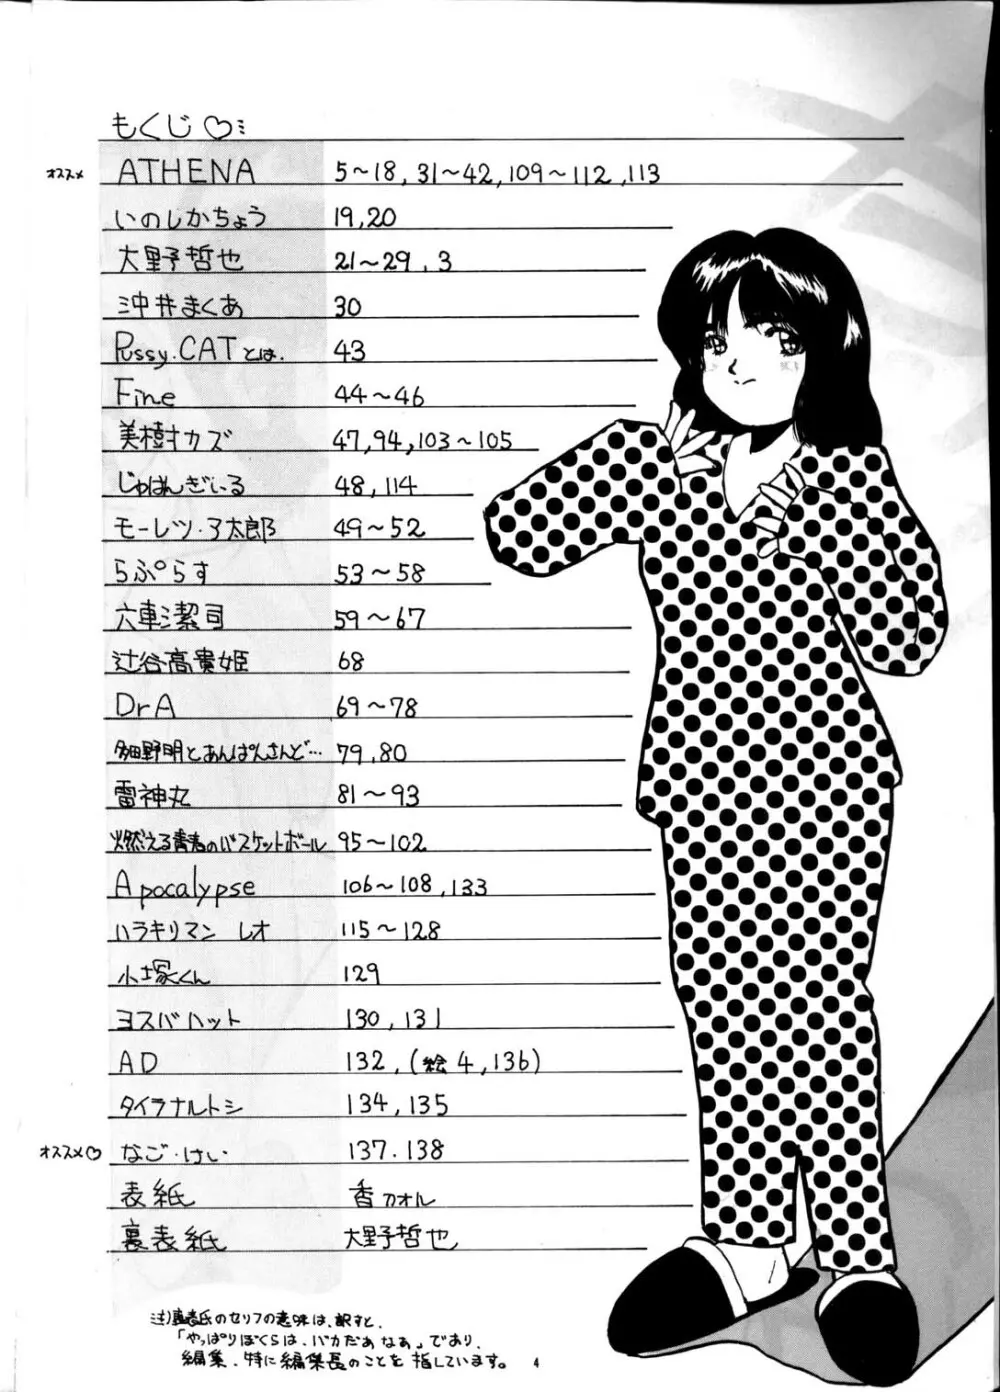 もくじ♡
オススメ ATHENA 5〜18,31〜42,109〜112,113
いのしかちょう 19,20
大野哲也 21〜29,3
沖井まくあ 30
Pussy.CATとは. 43
Fine 44〜46
美樹カズ 47,94,103〜105
じゅはんぎぃる 48,114
モーレツ・ア太郎 49〜52
らぷらす 53〜58
六車潔司 59〜67
辻谷高貴姫 68
DrA 69〜78
多細野明とあんぱんさんど… 79,80
雷神丸 81〜93
燃える青春のバスケットボール 95〜102
Apocalypse 106〜108,133
ハラキリマン レオ 115〜128
小塚くん 129
ヨスバハット 130,131
AD 132,(絵4,136)
タイラナルトシ 134,135
オススメ♡ なご・けい 137.138
表紙 香カオル
裏表紙 大野哲也
注)氏のセリフの意味は、訳すと、
「やっぱりぼくらは、バカだあなあ」であり、
編集、特に編集長のことを指しています。
4